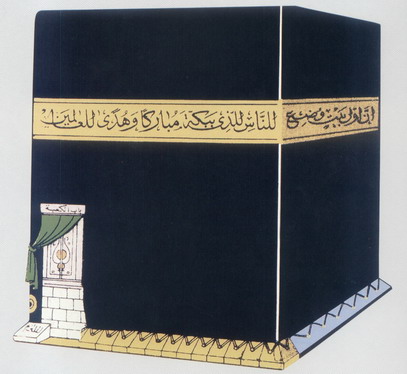 إنّ اوّل بيت وضع للنّاس للذى ببكة مباركًا وهدًى للعالمين
باب الكعبة
الملتزم